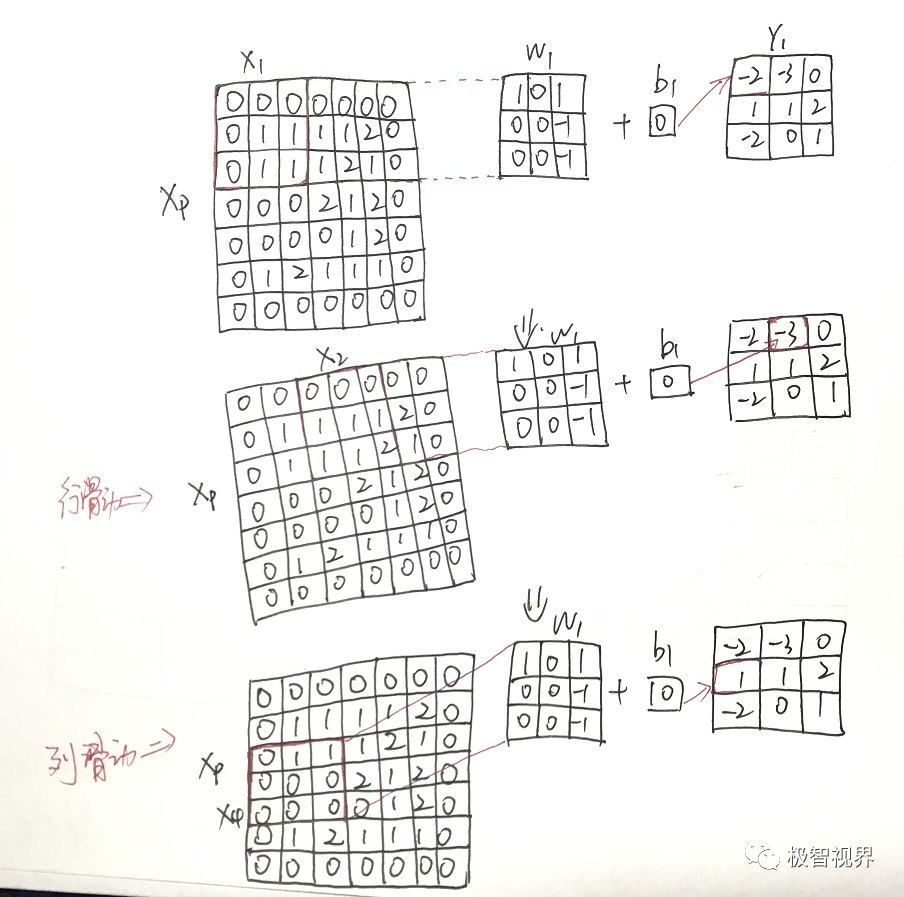 X1 W1 b1 Y1
0 0 0 0 0 0 0
0 1 1 1 1 2 0
0 1 1 1 2 1 0
Xp 0 0 0 2 1 2 0
0 0 0 0 1 2 0
0 1 2 1 1 1 0
0 0 0 0 0 0 0
1 0 1
0 0 -1
0 0 -1
+ 0
-2 -3 0
1 1 2
-2 0 1
X2 W1 b1
0 0 0 0 0 0 0
0 1 1 1 1 2 0
0 1 1 1 2 1 0
行滑动 => Xp 0 0 0 2 1 2 0
0 0 0 0 1 2 0
0 1 2 1 1 1 0
0 0 0 0 0 0 0
1 0 1
0 0 -1
0 0 -1
+ 0
-2 -3 0
1 1 2
-2 0 1
W1 b1
0 0 0 0 0 0 0
0 1 1 1 1 2 0
0 1 1 1 2 1 0
列滑动 => Xp 0 0 0 2 1 2 0
0 0 0 0 1 2 0
0 1 2 1 1 1 0
0 0 0 0 0 0 0
1 0 1
0 0 -1
0 0 -1
+ 0
-2 -3 0
1 1 2
-2 0 1
极智视界